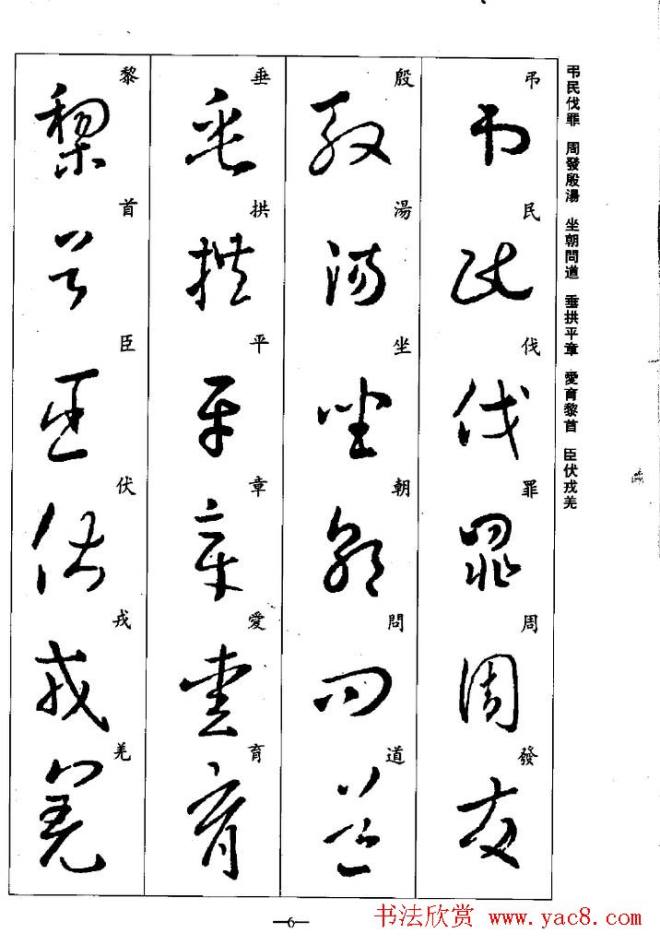 弔民伐罪 周發殷湯 坐朝問道 垂拱平章 愛育黎首 臣伏戎羌
弔民伐罪周發
殷湯坐朝問道
垂拱平章愛育
黎首臣伏戎羌
—6—
书法欣赏 www.yac8.com